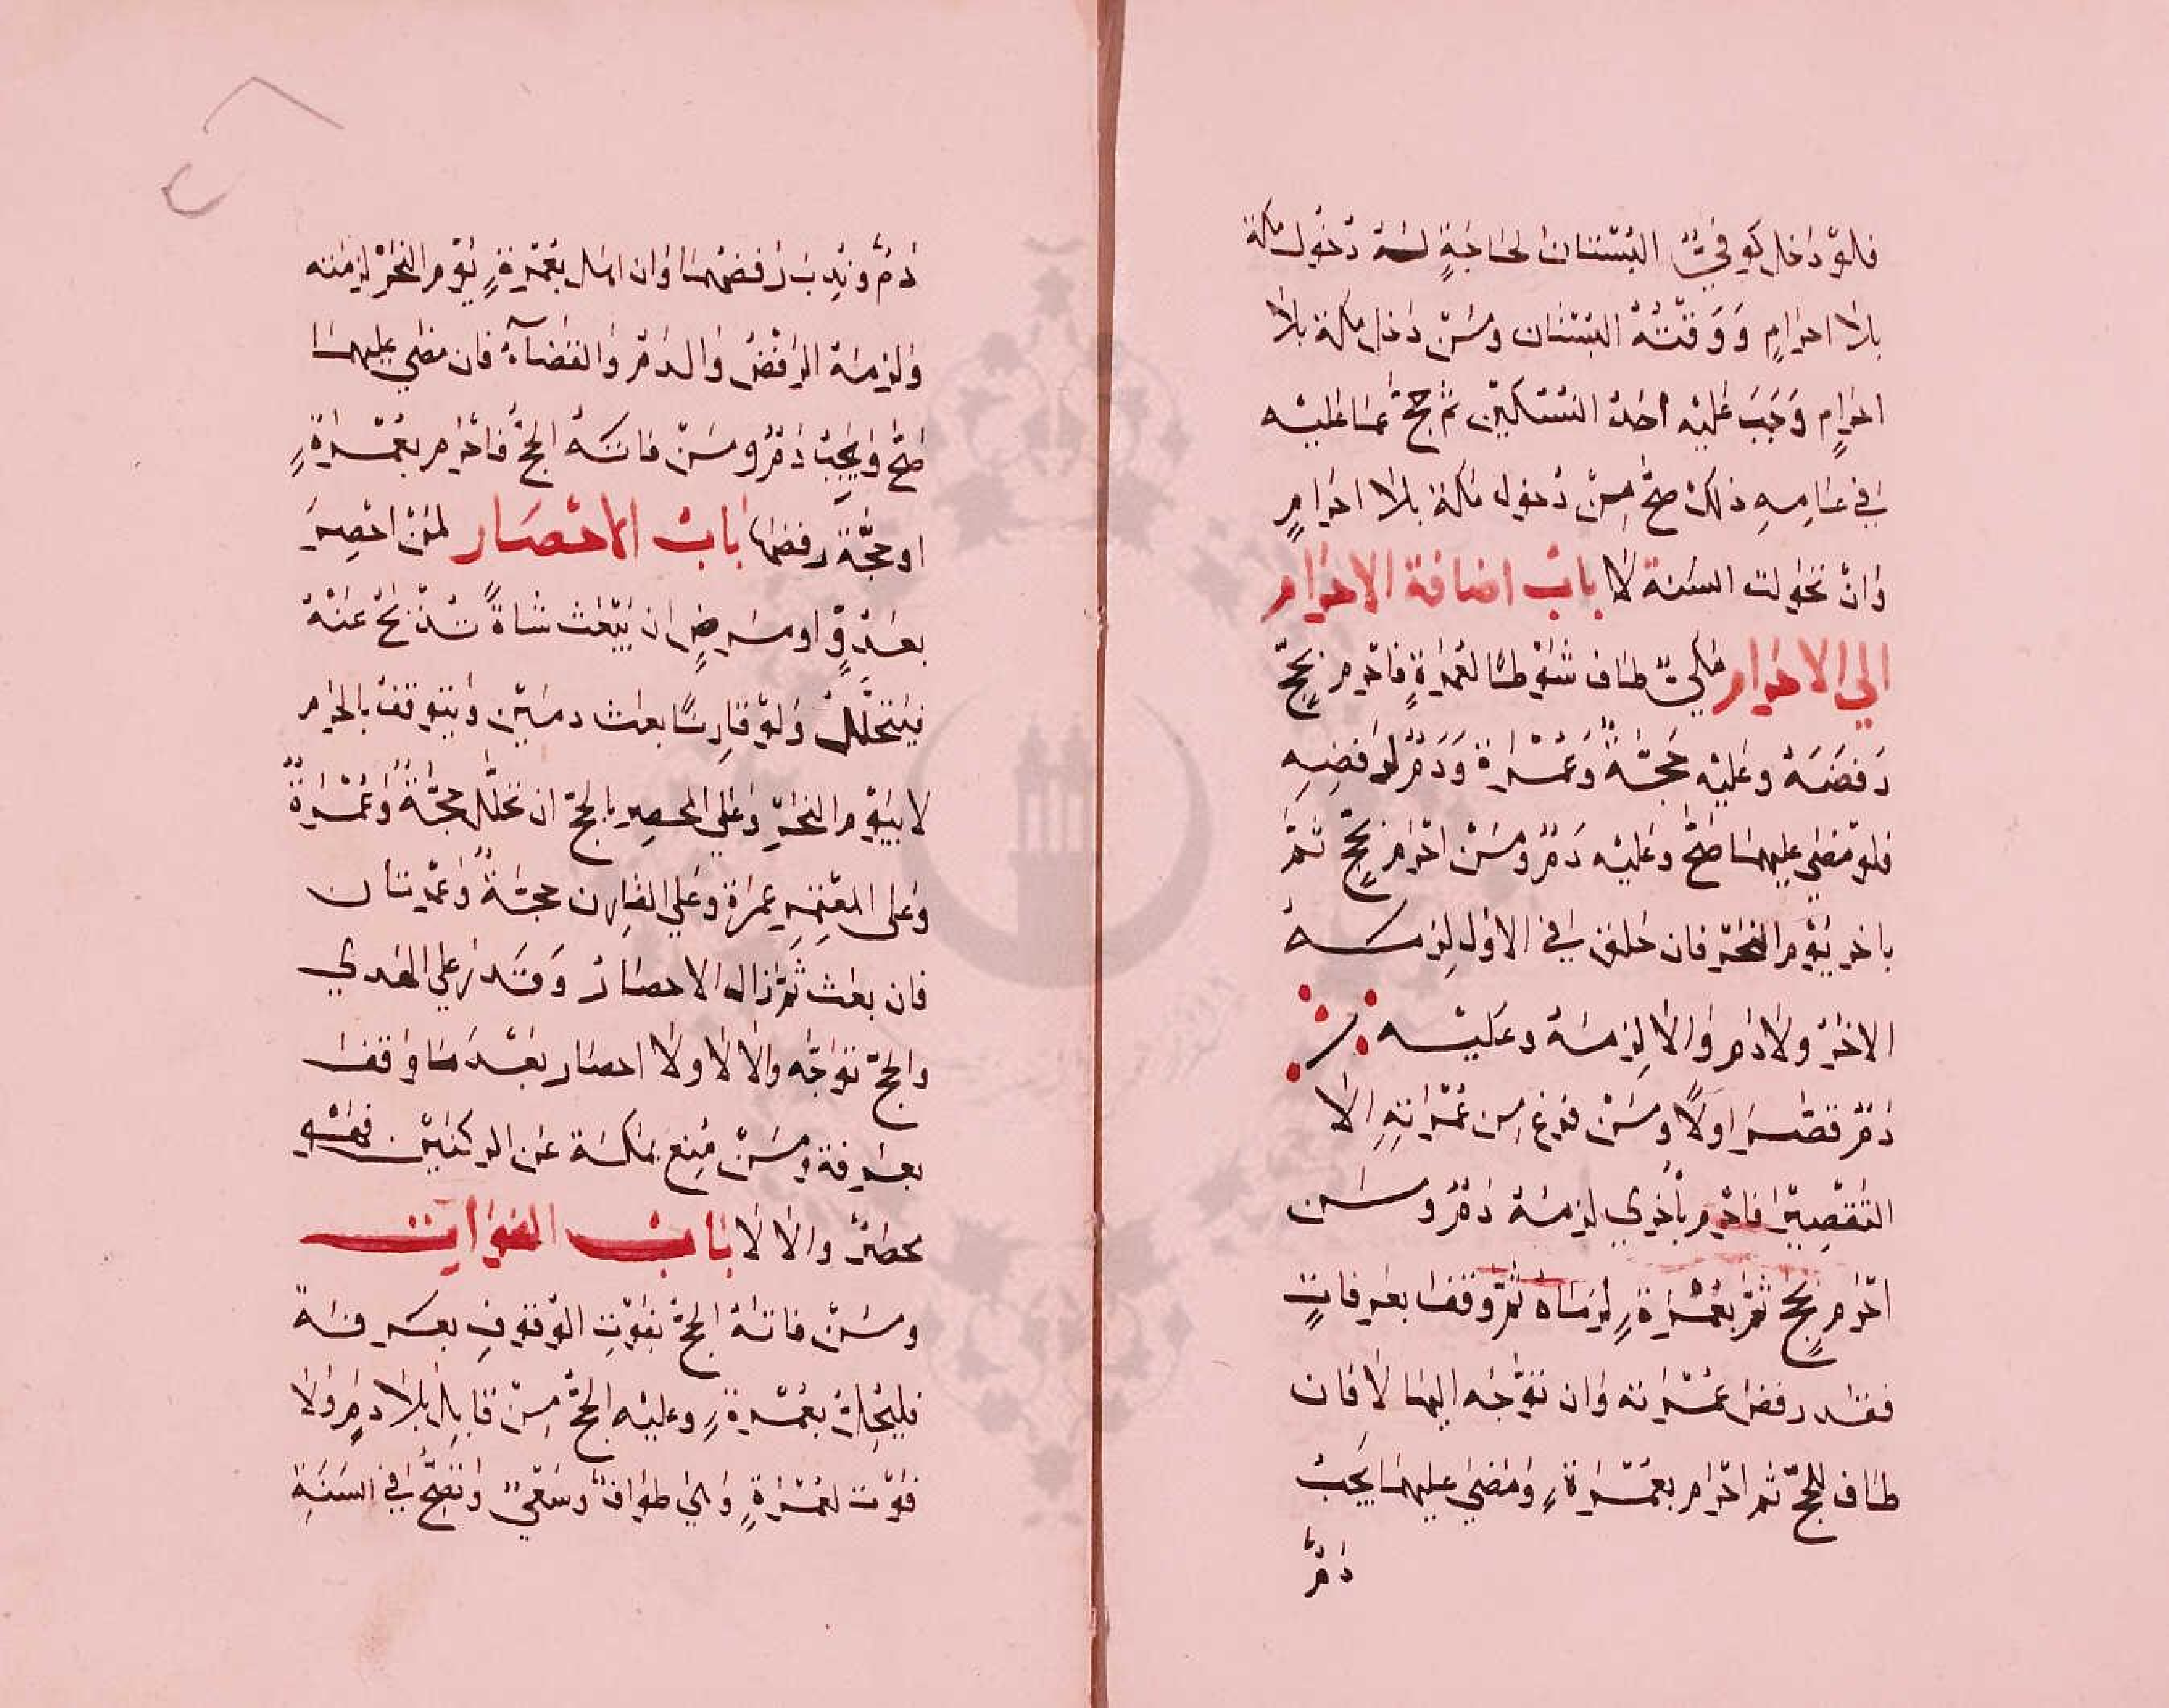 فلو دخل كوفي البستان لحاجة له دخول مكة
بلا احرام ووقته البستان ومن دخل مكة بلا
احرام وجب عليه احد النسكين ثم حج عما عليه
في عامه ذلك صح من دخول مكة بلا احرام
وان تحولت السنة لا باب اضافة الاحرام
الي الاحرام مكي طاف شوطا لعمرة فاحرم بحج
رفضه وعليه حجة وعمرة ودم لرفضه
فلو مضي عليهما صح وعليه دم ومن احرم بحج ثم
باخر يوم النحر فان حلق في الاول لزمه
الاخر ولا دم والا لزمه وعليه
دم قصر اولا ومن فرغ من عمرته الا
التقصير فاحرم باخري لزمه دم ومن
احرم بحج ثم بعمرة لزماه ثم وقف بعرفات
فقد رفض عمرته وان توجه اليها لا فان
طاف للحج ثم احرم بعمرة ومضي عليهما يجب
دم
دم وندب رفضهما وان اهل بعمرة يوم النحر لزمته
ولزمه الرفض والدم والقضآء فان مضي عليهما
صح ويجب دم ومن فاته الحج فاحرم بعمرة
او حجة رفضها باب الاحصار لمن احصر
بعدو او مرض ان يبعث شاة تذبح عنه
فيتحلل ولو قارنا بعث دمين ويتوقف بالحرم
لا بيوم النحر وعلي المحصر بالحج ان تحلل حجة وعمرة
وعلى المعتمر عمرة وعلي القارن حجة وعمرتان
فان بعث ثم زال الاحصار وقدر علي الهدي
والحج توجه والا لا ولا احصار بعد ما وقف
بعرفة ومن منع بمكة عن الركنين فهو
محصر والا لا باب الفوات
ومن فاته الحج بفوت الوقوف بعرفة
فليحل بعمرة وعليه الحج من قابل بلا دم ولا
فوت لعمرة وهي طواف وسعي وتصح في السنة